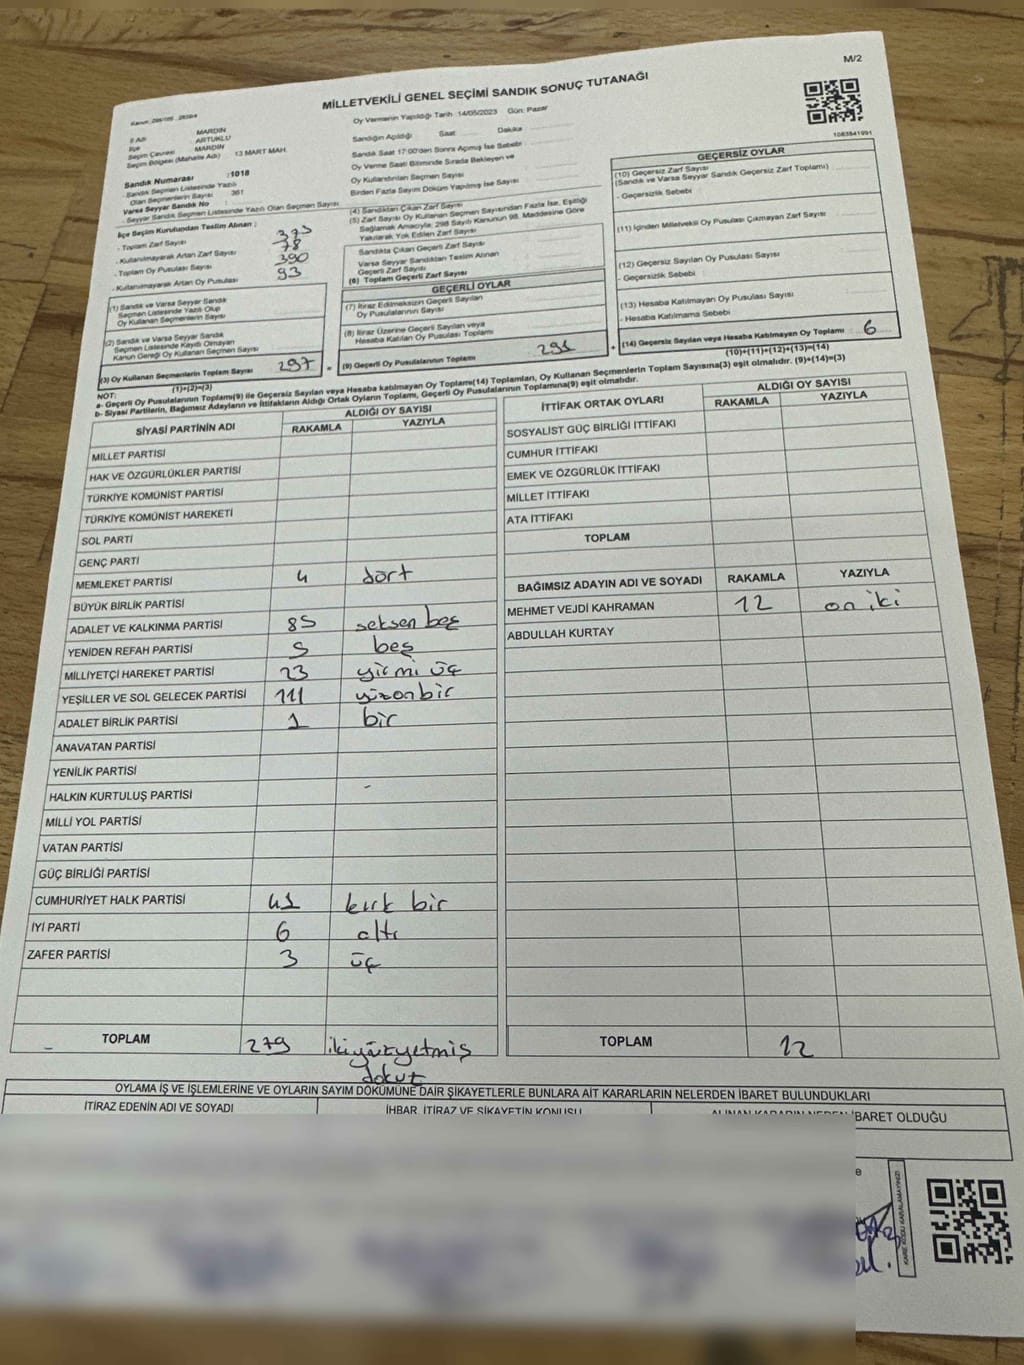 M/2
MİLLETVEKİLİ GENEL SEÇİMİ SANDIK SONUÇ TUTANAĞI
1083841991
İl Adı MARDİN
İlçe ARTUKLU
Seçim Çevresi MARDİN
Seçim Bölgesi (Mahalle Adı) 13 MART MAH.
Sandık Numarası :1018
- Sandık Seçmen Listesinde Yazılı
Olan Seçmenlerin Sayısı 361
Varsa Seyyar Sandık No :
- Seyyar Sandık Seçmen Listesinde Yazılı Olan Seçmen Sayısı
İlçe Seçim Kurulundan Teslim Alınan ;
- Toplam Zarf Sayısı
- Kullanılmayarak Artan Zarf Sayısı 78
- Toplam Oy Pusulası Sayısı 390
- Kullanılmayarak Artan Oy Pusulası 93
(1) Sandık ve Varsa Seyyar Sandık
Seçmen Listesinde Yazılı Olup
Oy Kullanan Seçmenlerin Sayısı
(2) Sandık ve Varsa Seyyar Sandık
Seçmen Listesinde Kayıtlı Olmayan
Kanun Gereği Oy Kullanan Seçmen Sayısı
(3) Oy Kullanan Seçmenlerin Toplam Sayısı 297
(1)+(2)=(3)
Oy Vermenin Yapıldığı Tarih :14/05/2023 Gün: Pazar
Sandığın Açıldığı Saat Dakika
Sandık Saat 17:00'den Sonra Açılmış İse Sebebi
Oy Verme Saati Bitiminde Sırada Bekleyen ve
Oy Kullandırılan Seçmen Sayısı
Birden Fazla Sayım Döküm Yapılmış İse Sayısı
(4) Sandıktan Çıkan Zarf Sayısı
(5) Zarf Sayısı Oy Kullanan Seçmen Sayısından Fazla İse, Eşitliği
Sağlamak Amacıyla; 298 Sayılı Kanunun 98. Maddesine Göre
Yakılarak Yok Edilen Zarf Sayısı
Sandıkta Çıkan Geçerli Zarf Sayısı
Varsa Seyyar Sandıktan Teslim Alınan
Geçerli Zarf Sayısı
(6) Toplam Geçerli Zarf Sayısı
GEÇERLİ OYLAR
(7) İtiraz Edilmeksizin Geçerli Sayılan
Oy Pusulalarının Sayısı
(8) İtiraz Üzerine Geçerli Sayılan veya
Hesaba Katılan Oy Pusulası Toplamı
= (9) Geçerli Oy Pusulalarının Toplamı 291
GEÇERSİZ OYLAR
(10) Geçersiz Zarf Sayısı
(Sandık ve Varsa Seyyar Sandık Geçersiz Zarf Toplamı)
- Geçersizlik Sebebi
(11) İçinden Milletvekili Oy Pusulası Çıkmayan Zarf Sayısı
(12) Geçersiz Sayılan Oy Pusulası Sayısı
- Geçersizlik Sebebi
(13) Hesaba Katılmayan Oy Pusulası Sayısı
- Hesaba Katılmama Sebebi
+ (14) Geçersiz Sayılan veya Hesaba Katılmayan Oy Toplamı 6
(10)+(11)+(12)+(13)=(14)
NOT:
a- Geçerli Oy Pusulalarının Toplamı(9) ile Geçersiz Sayılan veya Hesaba katılmayan Oy Toplamı(14) Toplamları, Oy Kullanan Seçmenlerin Toplam Sayısına(3) eşit olmalıdır. (9)+(14)=(3)
b- Siyasi Partilerin, Bağımsız Adayların ve İttifakların Aldığı Ortak Oyların Toplamı, Geçerli Oy Pusulalarının Toplamına(9) eşit olmalıdır.
SİYASİ PARTİNİN ADI ALDIĞI OY SAYISI
RAKAMLA YAZIYLA
MİLLET PARTİSİ
HAK VE ÖZGÜRLÜKLER PARTİSİ
TÜRKİYE KOMÜNİST PARTİSİ
TÜRKİYE KOMÜNİST HAREKETİ
SOL PARTİ
GENÇ PARTİ
MEMLEKET PARTİSİ 4 dört
BÜYÜK BİRLİK PARTİSİ
ADALET VE KALKINMA PARTİSİ 85 seksen beş
YENİDEN REFAH PARTİSİ 5 beş
MİLLİYETÇİ HAREKET PARTİSİ 23 yirmi üç
YEŞİLLER VE SOL GELECEK PARTİSİ 111 yüzonbir
ADALET BİRLİK PARTİSİ 1 bir
ANAVATAN PARTİSİ
YENİLİK PARTİSİ
HALKIN KURTULUŞ PARTİSİ -
MİLLİ YOL PARTİSİ
VATAN PARTİSİ
GÜÇ BİRLİĞİ PARTİSİ
CUMHURİYET HALK PARTİSİ 41 kırk bir
İYİ PARTİ 6 altı
ZAFER PARTİSİ 3 üç
TOPLAM 279 ikiyüzyetmiş
dokuz
İTTİFAK ORTAK OYLARI ALDIĞI OY SAYISI
RAKAMLA YAZIYLA
SOSYALİST GÜÇ BİRLİĞİ İTTİFAKI
CUMHUR İTTİFAKI
EMEK VE ÖZGÜRLÜK İTTİFAKI
MİLLET İTTİFAKI
ATA İTTİFAKI
TOPLAM
BAĞIMSIZ ADAYIN ADI VE SOYADI RAKAMLA YAZIYLA
MEHMET VEJDİ KAHRAMAN 12 on iki
ABDULLAH KURTAY
TOPLAM 12
OYLAMA İŞ VE İŞLEMLERİNE VE OYLARIN SAYIM DÖKÜMÜNE DAİR ŞİKAYETLERLE BUNLARA AİT KARARLARIN NELERDEN İBARET BULUNDUKLARI
İTİRAZ EDENİN ADI VE SOYADI İHBAR, İTİRAZ VE ŞİKAYETİN KONUSU ALINAN KARARIN NEDEN İBARET OLDUĞU
KARE KODU KARALAMAYINIZ!